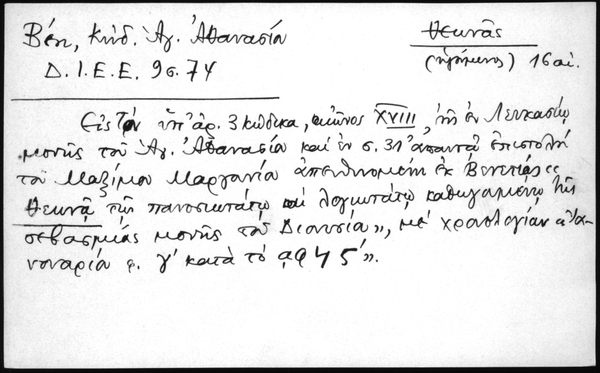 Βέη, Κώδ. Ἁγ. Ἀθανασία
Θεωνᾶς
Δ. Ι. Ε. Ε. 9 σ. 74
(ἡγούμενος) 16 αἰ.
Εἰς τὸν ὑπ' ἀρ. 3 κώδικα, αἰῶνος XVIII, τῆς ἐν Λευκασίῳ
μονῆς τοῦ Ἁγ. Ἀθανασία καὶ ἐν σ. 31 ἀπαντᾷ ἐπιστολὴ
τοῦ Μαξίμου Μαργουνία ἀπευθυνομένη ἐκ Βενετίας «
Θεωνᾷ τῷ πανοσιωτάτῳ καὶ λογιωτάτῳ καθηγουμένῳ τῆς
σεβασμίας μονῆς τοῦ Διονυσίου», μὲ χρονολογίαν «Ἰα-
νουαρία ς. γ' κατὰ τὸ